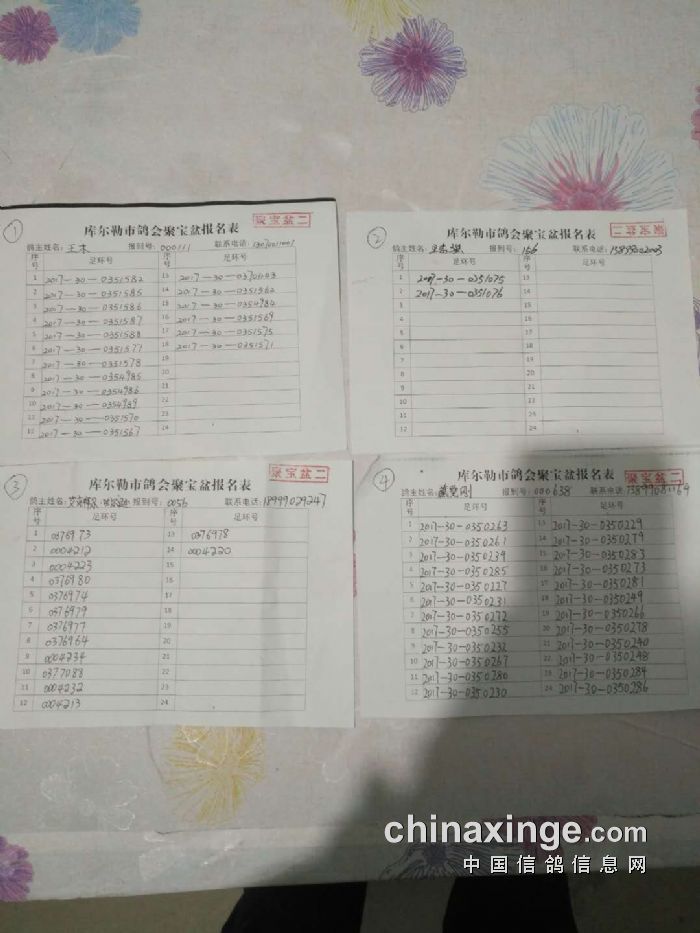 ①
库尔勒市鸽会聚宝盆报名表
聚宝盆二
鸽主姓名: 王木 报到号: 000111 联系电话:
序号 足环号 序号 足环号
1 2017-30-0351582 13 2017-30-0370603
2 2017-30-0351585 14 2017-30-0351562
3 2017-30-0351586 15 2017-30-0354984
4 2017-30-0351587 16 2017-30-0351569
5 2017-30-0351588 17 2017-30-0351575
6 2017-30-0351577 18 2017-30-0351571
7 2017-30-0351578 19
8 2017-30-0354985 20
9 2017-30-0354986 21
10 2017-30-0354989 22
11 2017-30-0351570 23
12 2017-30-0351567 24
②
库尔勒市鸽会聚宝盆报名表
聚宝盆二
鸽主姓名: 报到号: 166 联系电话:
序号 足环号 序号 足环号
1 2017-30-0351075 13
2 2017-30-0351076 14
3 15
4 16
5 17
6 18
7 19
8 20
9 21
10 22
11 23
12 24
③
库尔勒市鸽会聚宝盆报名表
聚宝盆二
鸽主姓名: 报到号: 0056 联系电话: 18999029247
序号 足环号 序号 足环号
1 0376973 13 0376978
2 0004212 14 0004220
3 0004223 15
4 0376980 16
5 0376974 17
6 0376979 18
7 0376977 19
8 0376964 20
9 0004234 21
10 0377088 22
11 0004232 23
12 0004213 24
④
库尔勒市鸽会聚宝盆报名表
聚宝盆二
鸽主姓名: 报到号: 000638 联系电话: 13899081169
序号 足环号 序号 足环号
1 2017-30-0350263 13 2017-30-0350229
2 2017-30-0350261 14 2017-30-0350279
3 2017-30-0350239 15 2017-30-0350283
4 2017-30-0350285 16 2017-30-0350273
5 2017-30-0350227 17 2017-30-0350281
6 2017-30-0350231 18 2017-30-0350249
7 2017-30-0350272 19 2017-30-0350266
8 2017-30-0350255 20 2017-30-0350278
9 2017-30-0350232 21 2017-30-0350240
10 2017-30-0350267 22 2017-30-0350248
11 2017-30-0350280 23 2017-30-0350284
12 2017-30-0350230 24 2017-30-0350286
chinaxinge.com
中国信鸽信息网